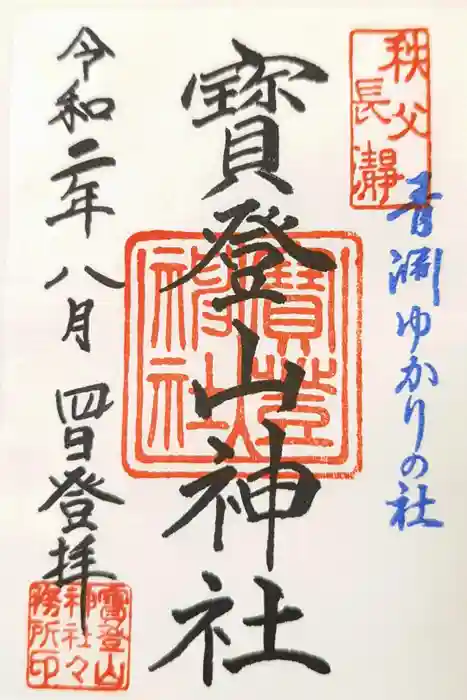 秩父
長瀞
青淵ゆかりの社
寶登山神社
寶登山
神社
令和二年八月四日登拝
寳登山
神社々
務所印